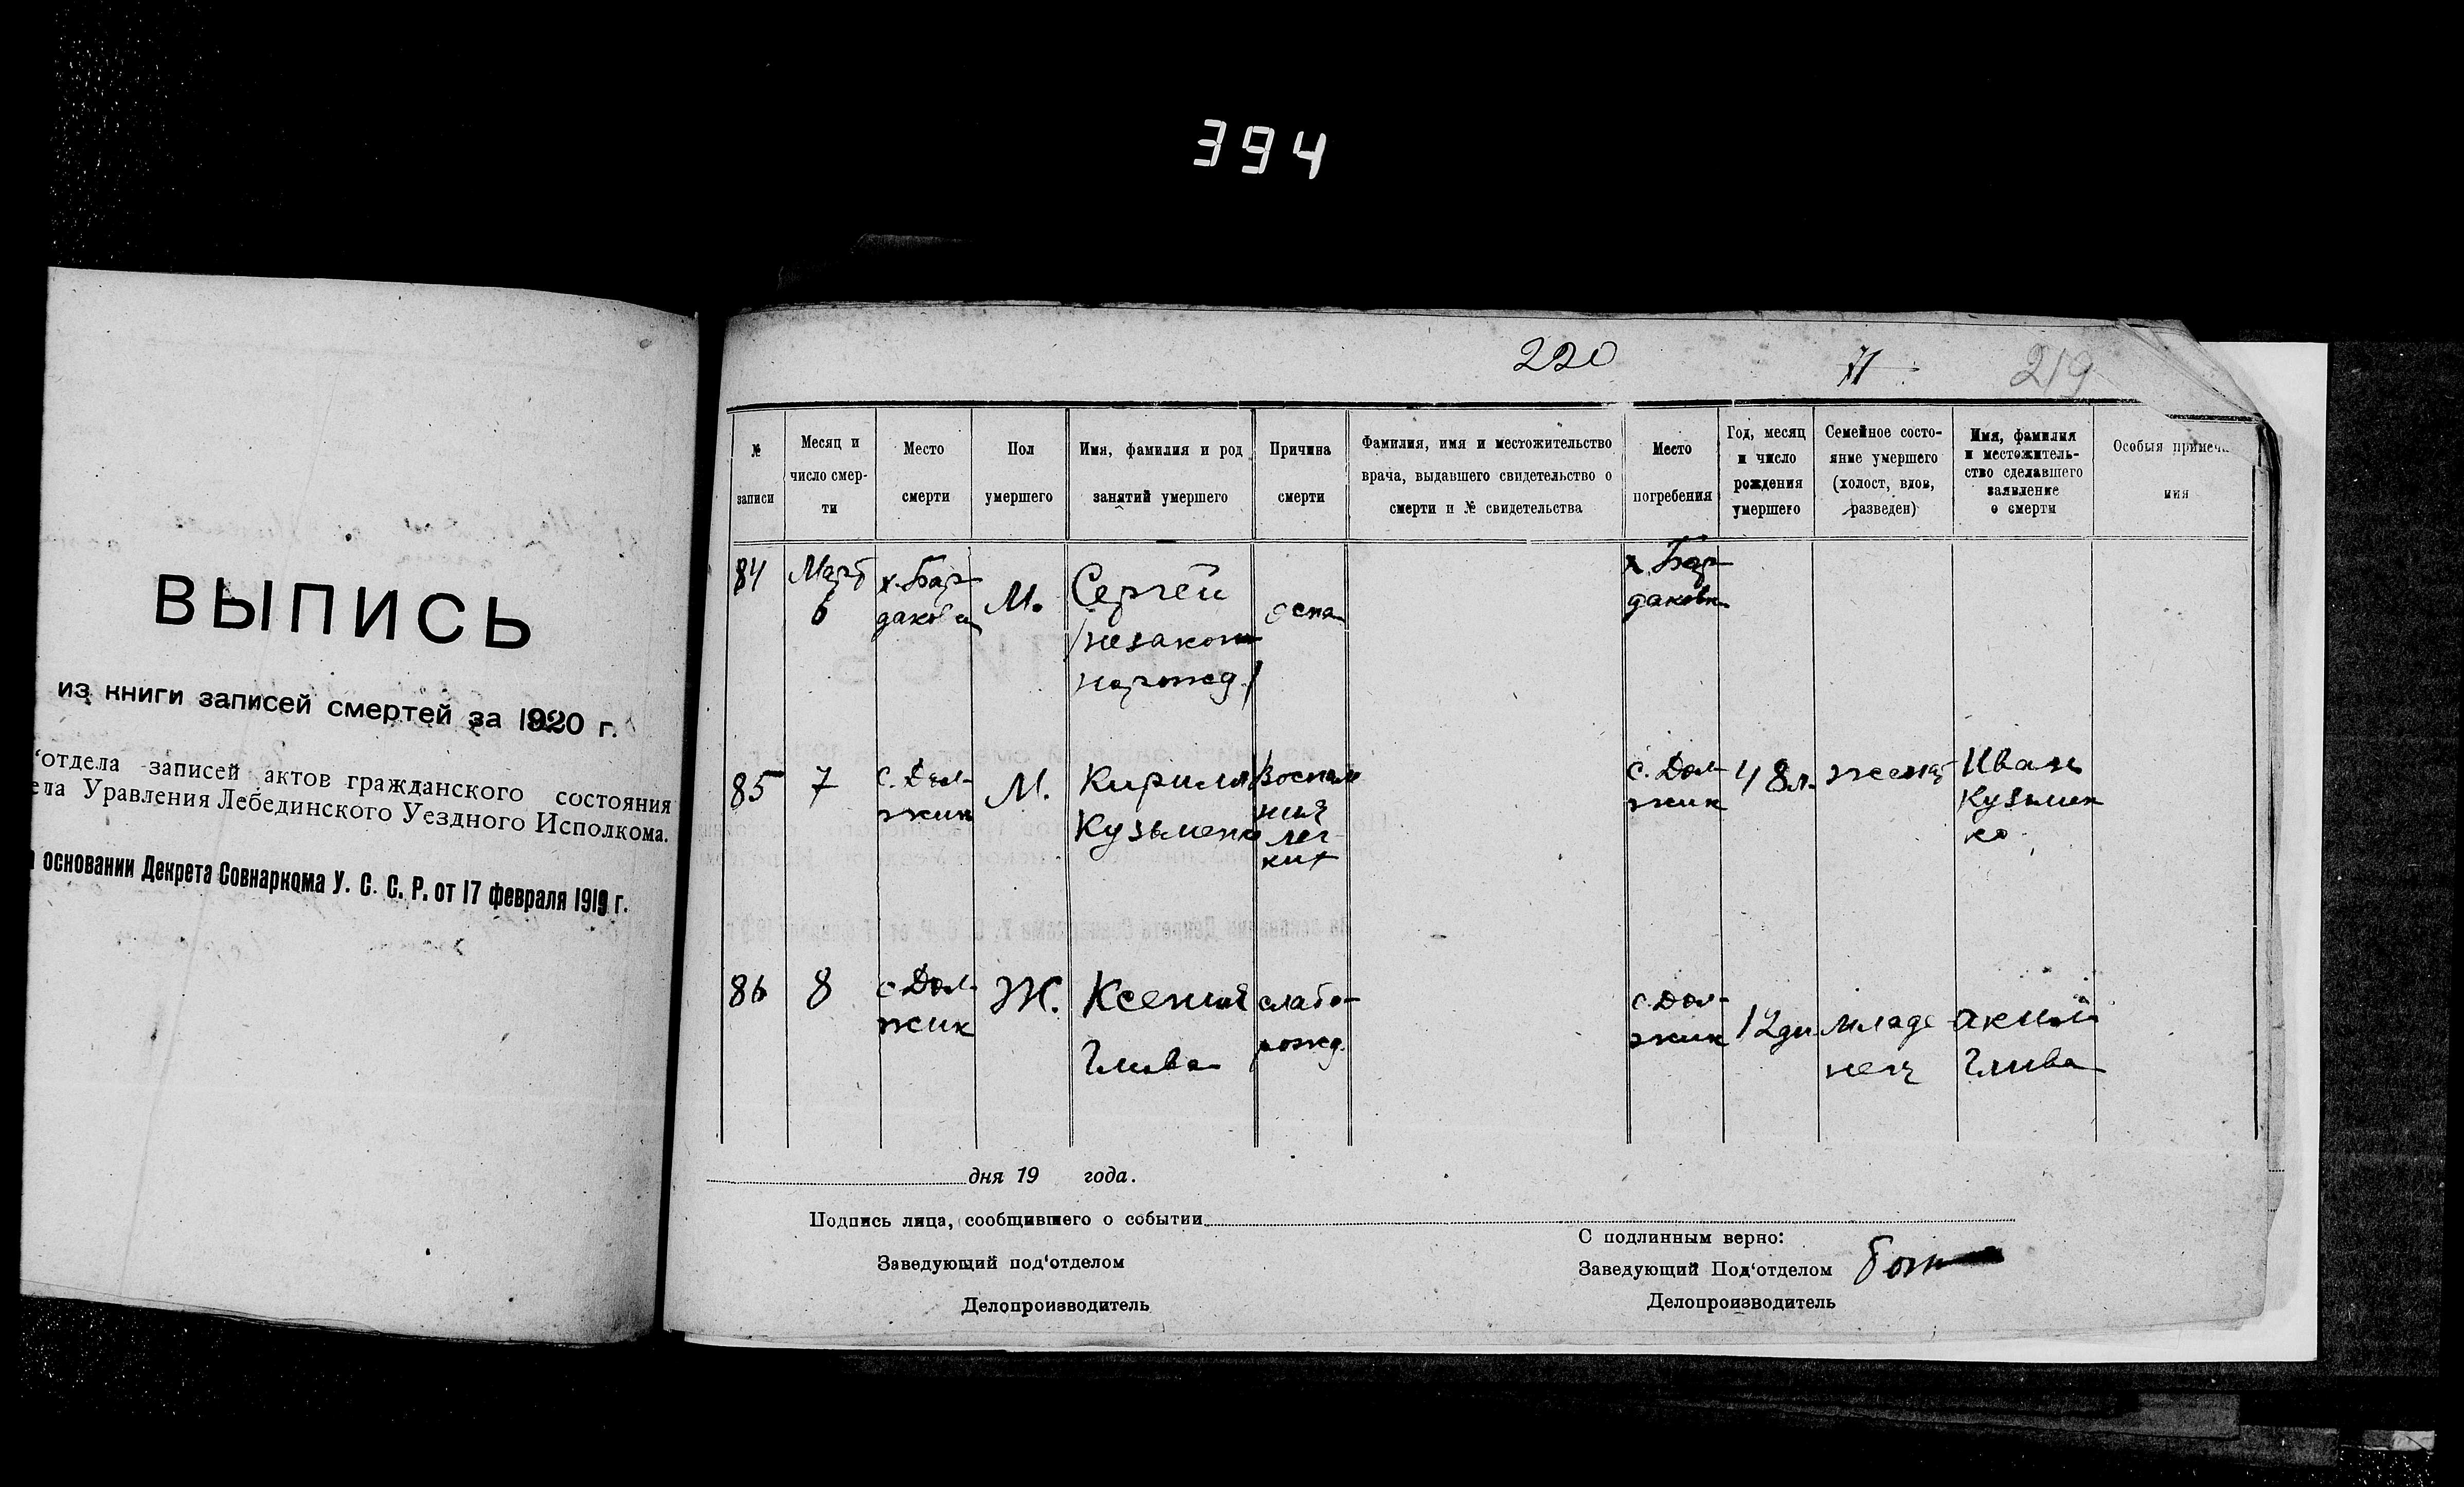 394
ВЫПИСЬ
из книги записей смертей за 1920 г.
‘отдела записей актов гражданского состояния
ела Уравления Лебединского Уездного Исполкома.
основании Декрета Совнаркома У. С. С. Р. от 17 февраля 1919 г.
220
71
219
№ записи
Месяц и число смер-ти
Место смерти
Пол умершего
Имя, фамилия и род занятий умершего
Причина смерти
Фамилия, имя и местожительство врача, выдавшего свидетельство о смерти и № свидетельства
Место погребения
Год, месяц и число рождения умершего
Семейное состо-яние умершего (холост, вдов, разведен)
Имя, фамилия и местожитель-ство сделавшего заявление о смерти
Особыя примеча
ния
84
Март
6
х. Бар-
даков
М.
Сергей
/незакон
норожд/
оспа
х. Бар-
даковк
85
7
с. Дол-
жик
М.
Кирилл
Кузьменко
Воспале
ния
лег
ких
с. Дол-
жик
48 л.
женат
Иван
Кузьмен
ко
86
8
с. Дол-
жик
Ж.
Ксения
Глива
слабо-
рожд.
с. Дол-
жик
12 дн
младе
нец
Аким
Глива
дня 19 года.
Подпись лица, сообщившего о событии
Заведующий под‘отделом
Делопроизводитель
С подлинным верно:
Заведующий Под‘отделом
Делопроизводитель